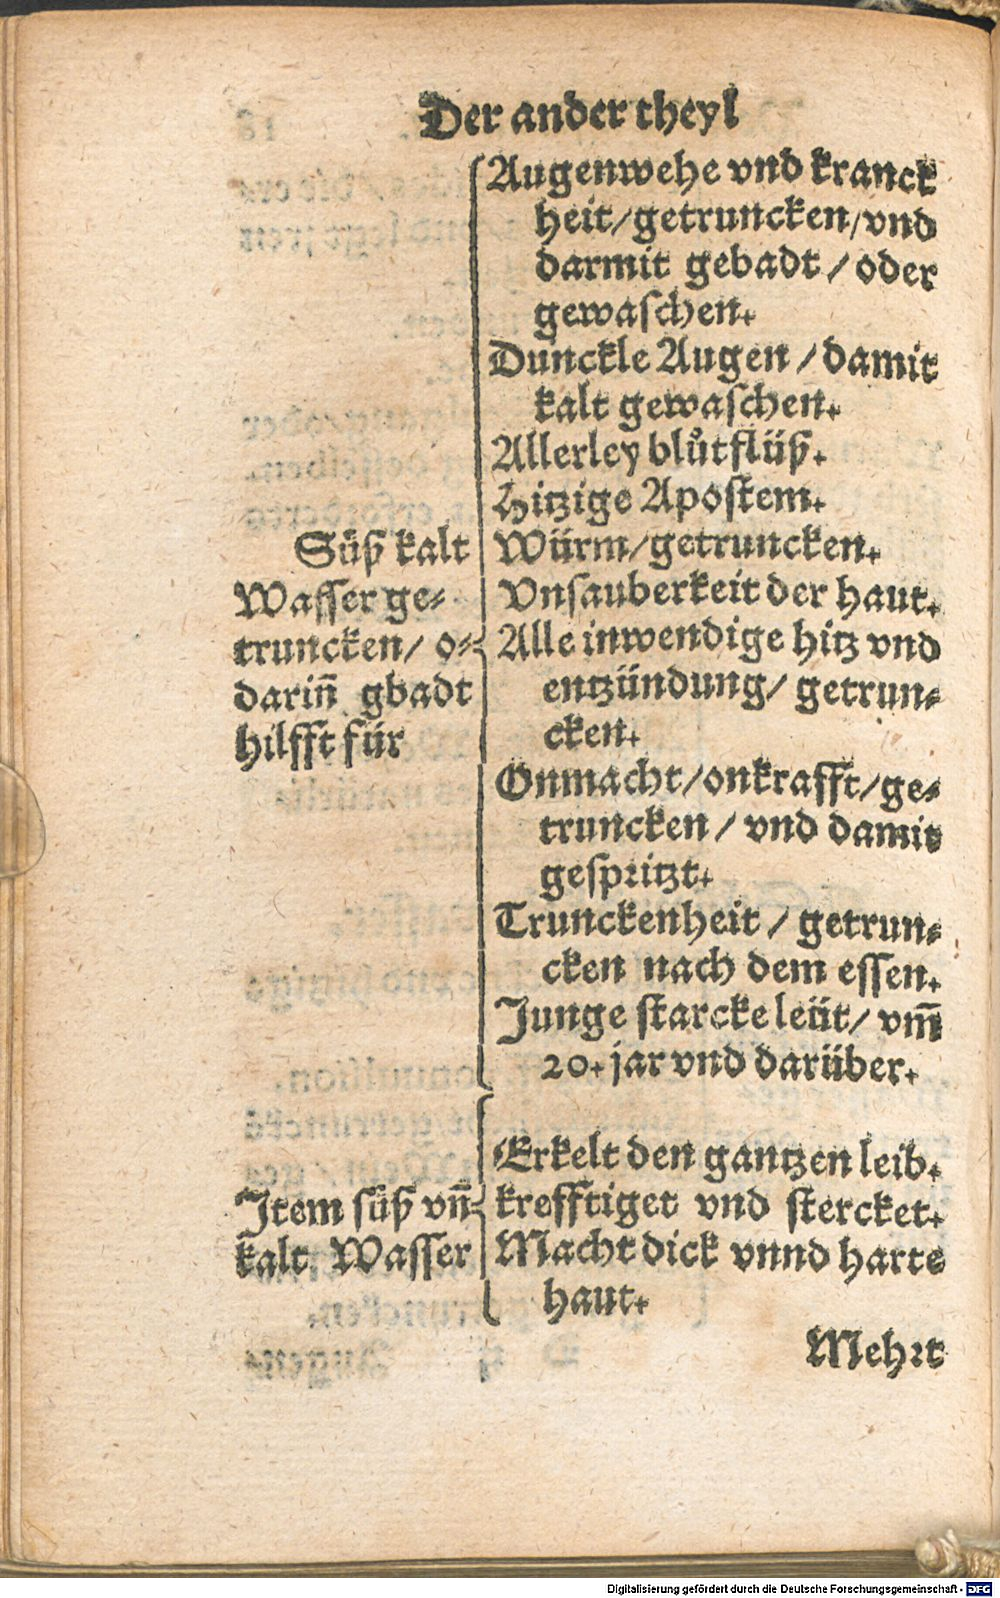 Der ander theyl
Süß kalt
Wasser ge⸗
truncken/ o⸗
dariñ gbadt
hilfft für
Augenwehe vnd kranck
heit/getruncken/vnd
darmit gebadt/oder
gewaschen.
Dunckle Augen/damit
kalt gewaschen.
Allerley blůtflüß.
Hitzige Apostem.
Würm/getruncken.
Vnsauberkeit der haut.
Alle inwendige hitz vnd
entzündung/ getrun⸗
cken.
Onmacht/onkrafft/ge⸗
truncken/ vnd damit
gespritzt.
Trunckenheit/ getrun⸗
cken nach dem essen.
Junge starcke leüt/ vm̃
20. jar vnd darüber.
Item süß vñ
kalt Wasser
Erkelt den gantzen leib.
krefftiget vnd stercket.
Macht dick vnnd harte
haut.
Mehrt
Digitalisierung gefördert durch die Deutsche Forschungsgemeinschaft - DFG